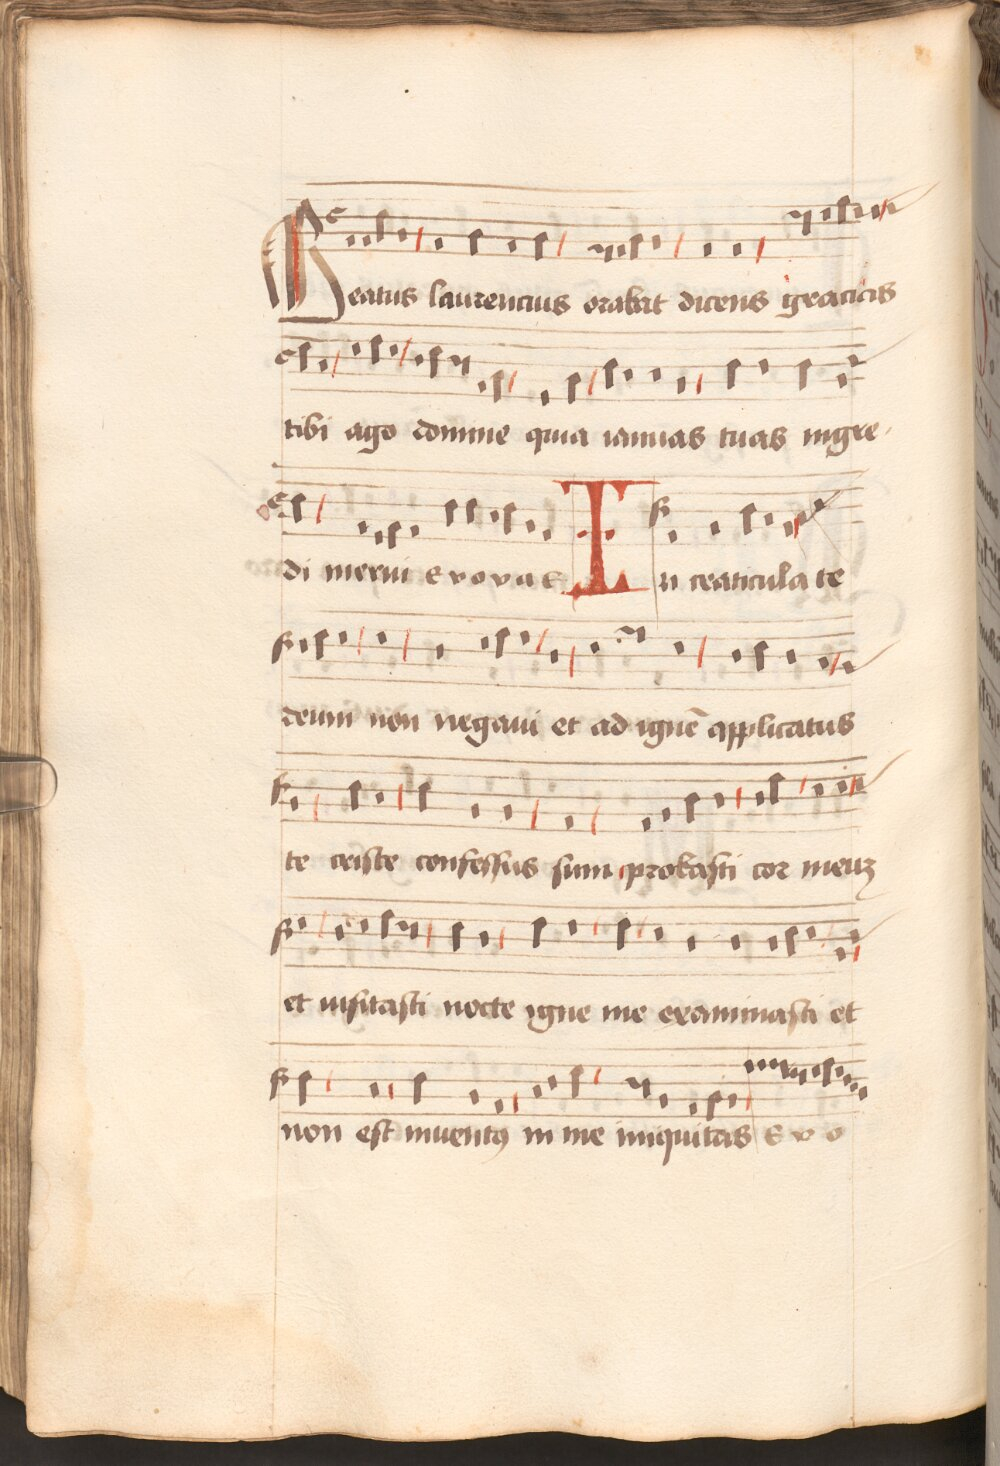 Beatus laurencius orabat dicens gracias
tibi ago domine quia ianuas tuas ingre-
di merui e v o v a e In craticula te
deum non negavi et ad igne̅ applicatus
te criste confessus sum probasti cor meuʒ
et visitasti nocte igne me examinasti et
non est inventꝰ in me iniquitas e v o